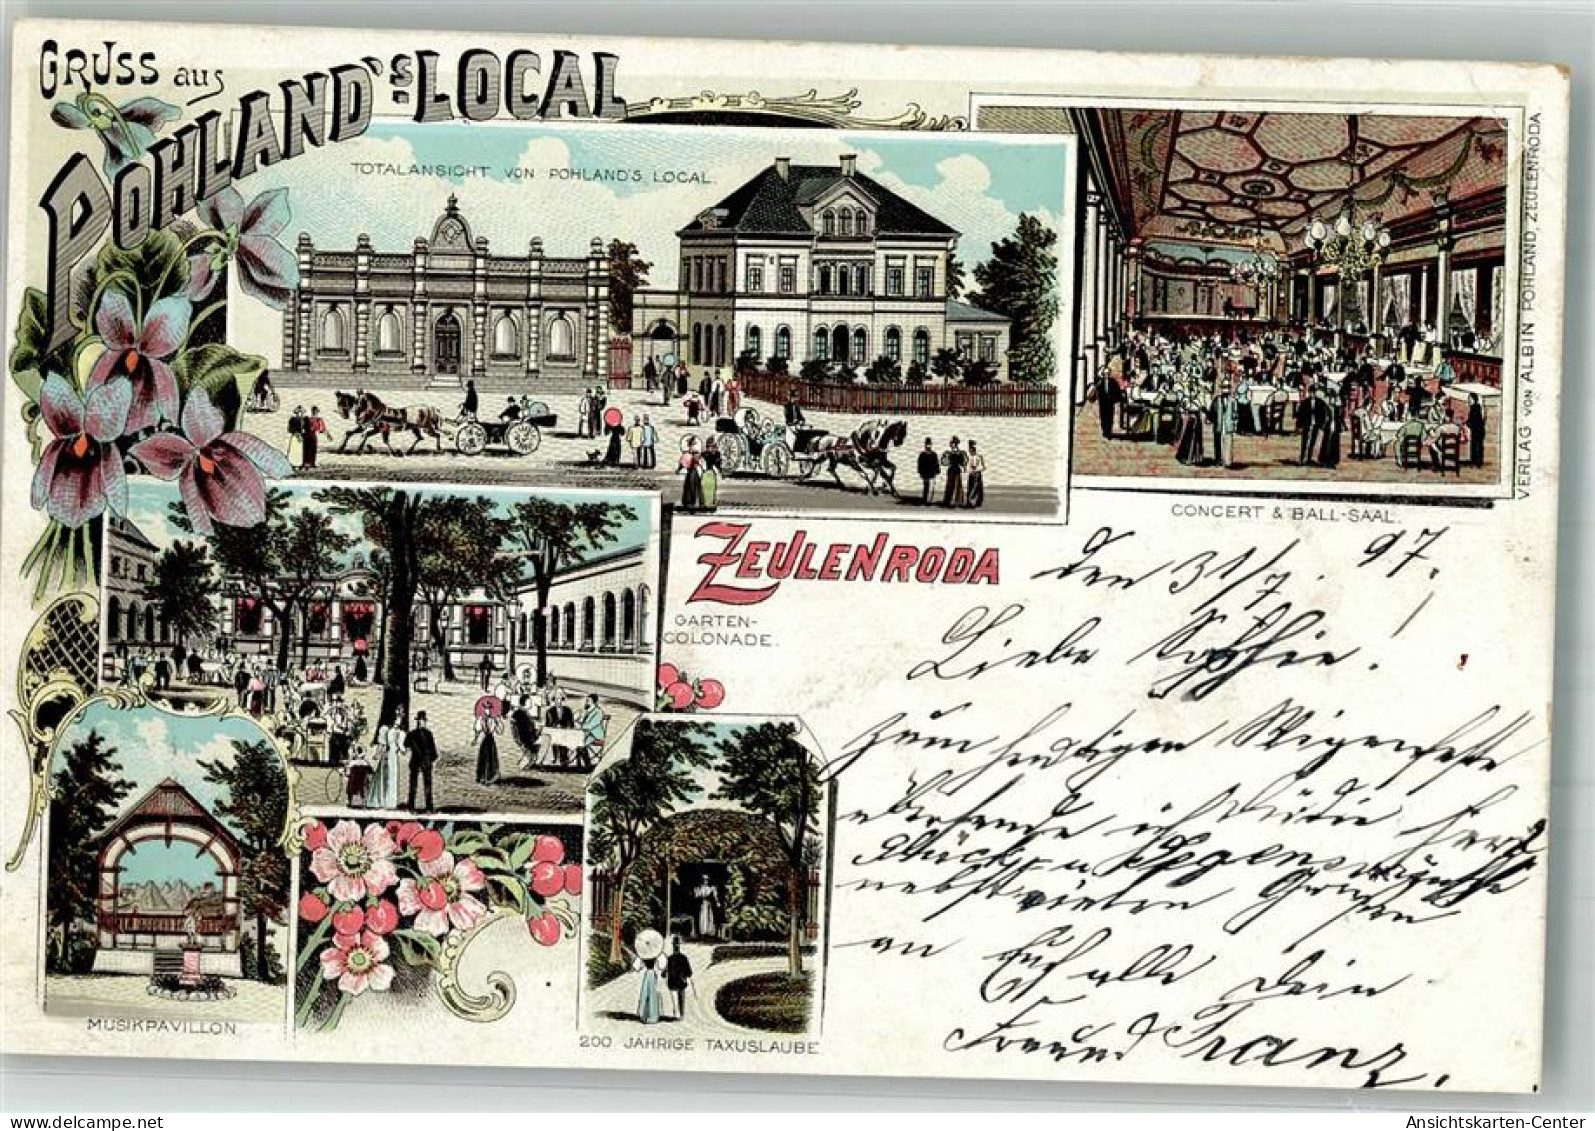 GRUSS aus
POHLAND'S LOCAL
TOTALANSICHT VON POHLAND'S LOCAL.
CONCERT & BALL-SAAL.
VERLAG VON ALBIN POHLAND, ZEULENRODA.
ZEULENRODA
GARTEN-
COLONADE.
MUSIKPAVILLON
200 JÄHRIGE TAXUSLAUBE
den 31/7. 97.
Liebe Sophie!
zum heutigen
übersende ich Dir die herz
Glück- u Segenswünsche
nebst vielen Grüßen
an Euch alle Dein
Freund Franz.
delcampe.net
Ansichtskarten-Center